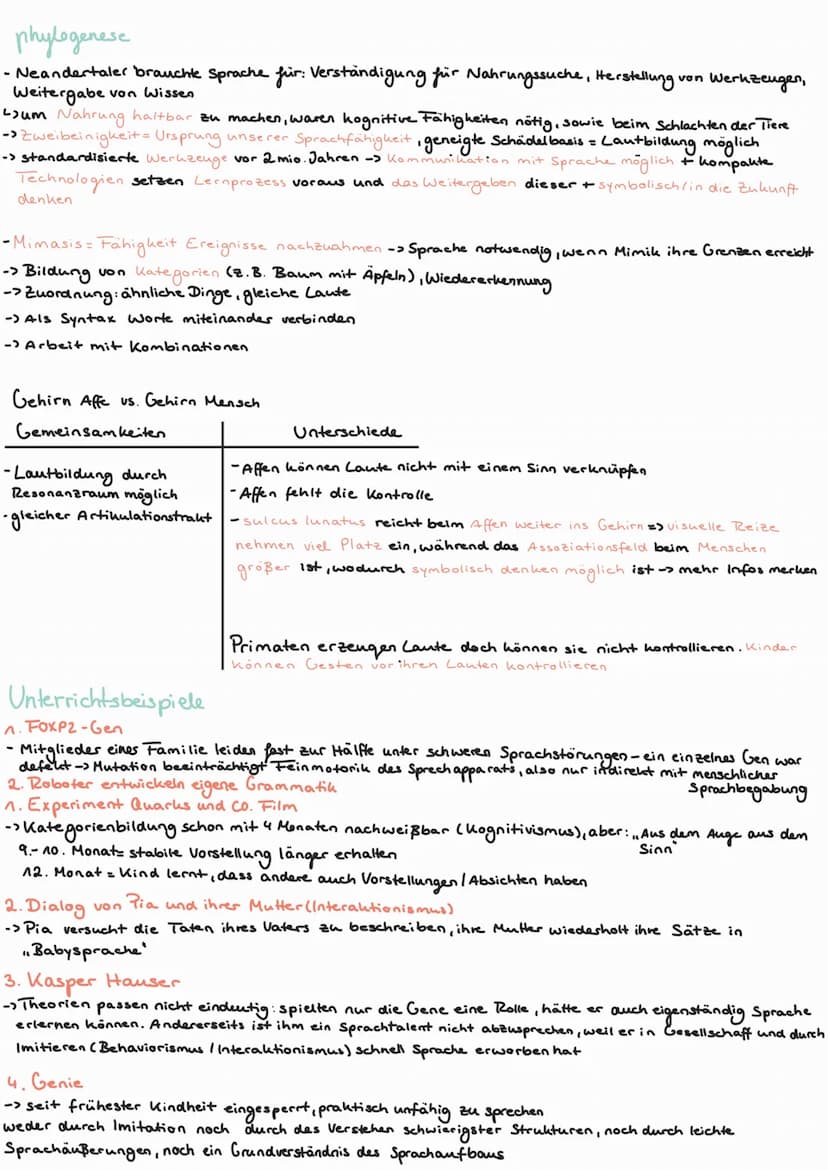 phylogenese
- Neandertaler brauchte Sprache für: Verständigung für Nahrungssuche, Herstellung von Werkzeugen,
Weitergabe von Wissen
↳um Nahrung haltbar zu machen, waren kognitive Fähigkeiten nötig, sowie beim Schlachten der Tiere
-> Zweibeinigkeit = Ursprung unserer Sprachfähigkeit, geneigte Schädelbasis = Lautbildung möglich
-> standardisierte Werkzeuge vor 2 mio. Jahren -> Kommunikation mit Sprache möglich + kompakte
Technologien setzen Lernprozess voraus und das Weitergeben dieser + symbolisch/in die Zukunft
denken
- Mimasis = Fähigkeit Ereignisse nachzuahmen -> Sprache notwendig, wenn Mimik ihre Grenzen erreicht
-> Bildung von Kategorien (z.B. Baum mit Äpfeln), Wiedererkennung
-> Zuordnung: ähnliche Dinge, gleiche Laute
-> Als Syntax Worte miteinander verbinden
-> Arbeit mit Kombinationen
Gehirn Affe vs. Gehirn Mensch
Gemeinsamkeiten
- Lautbildung durch
Resonanzraum möglich
- gleicher Artikulationstrakt
Unterschiede
- Affen können Laute nicht mit einem Sinn verknüpfen
- Affen fehlt die Kontrolle
- sulcus lunatus reicht beim Affen weiter ins Gehirn => visuelle Reize
nehmen viel Platz ein, während das Assoziationsfeld beim Menschen
größer ist, wodurch symbolisch denken möglich ist -> mehr Infos merken
Primaten erzeugen Laute doch können sie nicht kontrollieren. Kinder
können Gesten vor ihren Lauten kontrollieren
Unterrichtsbeispiele
1. FOXP2-Gen
- Mitglieder eines Familie leiden fast zur Hälfte unter schweren Sprachstörungen - ein einzelnes Gen war
defekt -> Mutation beeinträchtigt Feinmotorik des Sprechapparats, also nur indirekt mit menschlicher
Sprachbegabung
2. Roboter entwickeln eigene Grammatik
1. Experiment Quarks und co. Film
-> Kategorienbildung schon mit 4 Monaten nachweißbar (Kognitivismus), aber: „Aus dem Auge aus dem
Sinn"
9.- 10. Monat = stabile Vorstellung länger erhalten
12. Monat = Kind lernt, dass andere auch Vorstellungen / Absichten haben
2. Dialog von Pia und ihrer Mutter (Interaktionismus)
-> Pia versucht die Taten ihres Vaters zu beschreiben, ihre Mutter wiederholt ihre Sätze in
„Babysprache"
3. Kasper Hauser
-> Theorien passen nicht eindeutig: spielten nur die Gene eine Rolle, hätte er auch eigenständig Sprache
erlernen können. Andererseits ist ihm ein Sprachtalent nicht abzusprechen, weil er in Gesellschaft und durch
Imitieren (Behaviorismus / Interaktionismus) schnell Sprache erworben hat
4. Genie
-> seit frühester Kindheit eingesperrt, praktisch unfähig zu sprechen
weder durch Imitation noch durch das Verstehen schwierigster Strukturen, noch durch leichte
Sprachäußerungen, noch ein Grundverständnis des Sprachaufbaus